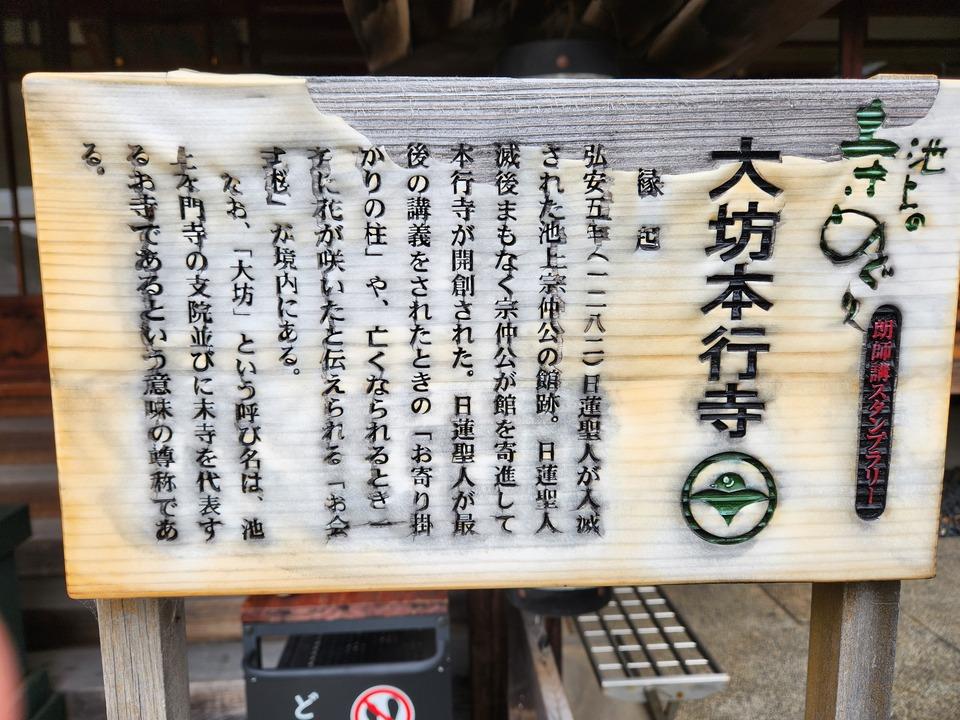 池上の
寺めぐり
朗師講スタンプラリー
大坊本行寺
縁起
弘安五年(一二八二)日蓮聖人が入滅
された池上宗仲公の館跡。日蓮聖人
滅後まもなく宗仲公が館を寄進して
本行寺が開創された。日蓮聖人が最
後の講義をされたときの「お寄り掛
かりの柱」や、亡くなられるとき一
斉に花が咲いたと伝えられる「お会
式桜」が境内にある。
なお、「大坊」という呼び名は、池
上本門寺の支院並びに末寺を代表す
るお寺であるという意味の尊称であ
る。
ど